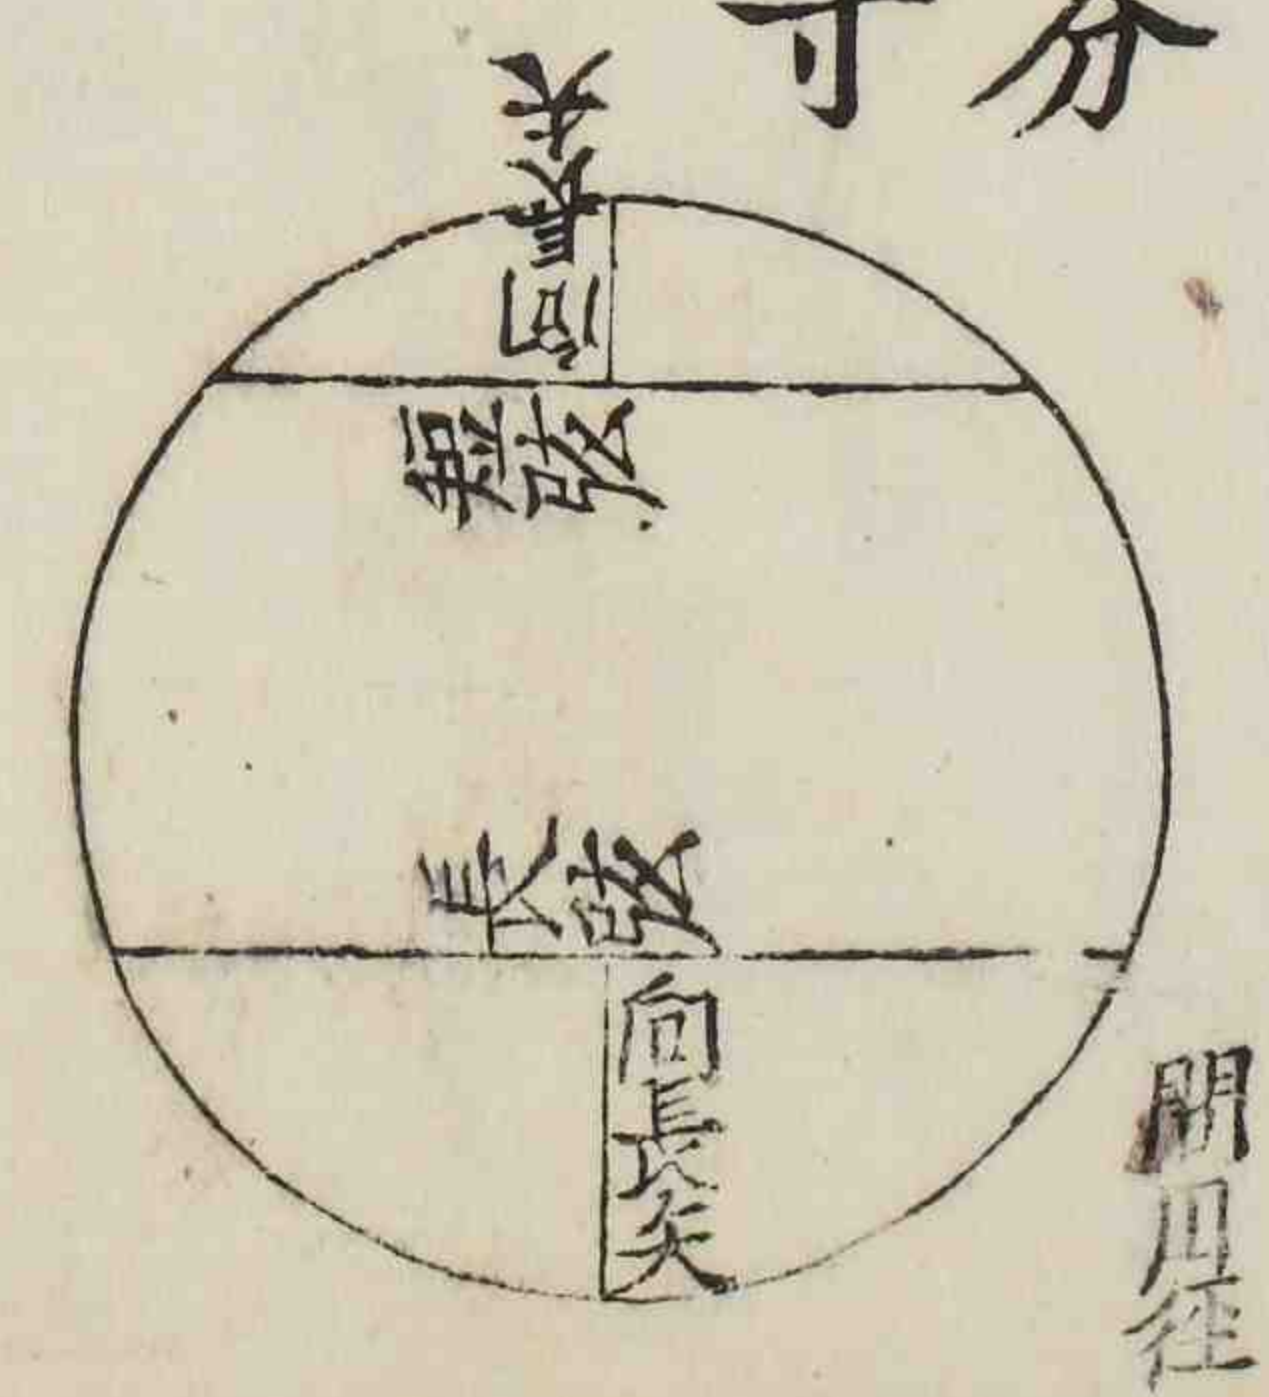 分
寸
向長矢
短弦
長弦
向長矢
問円径